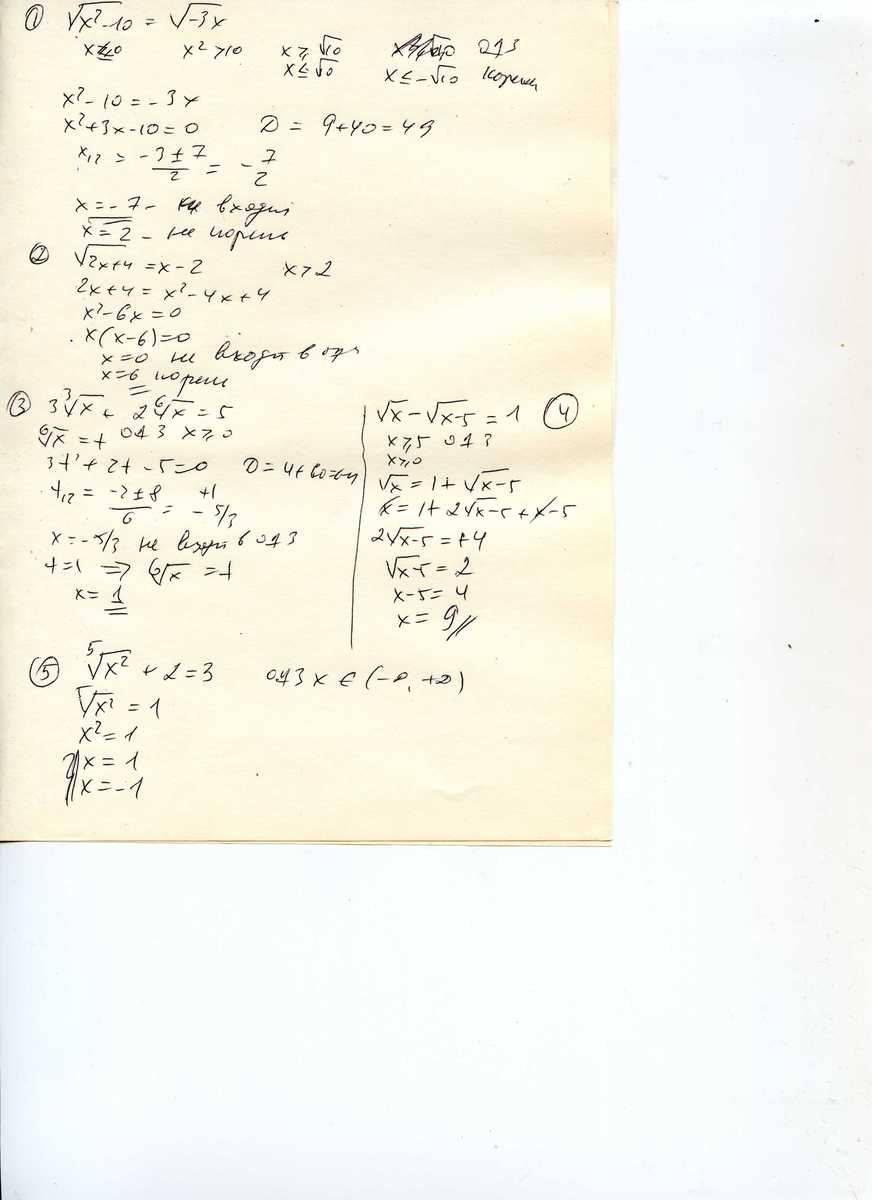 ① √x²-10 = √-3x
x≤0 x² > 10 x ≥ √10 ОДЗ
x ≤ √10 x ≤ -√10 корень
x² - 10 = -3x
x² + 3x - 10 = 0 D = 9+40=49
x₁₂ = -3±7/2 = -7 2
x = -7 - не входит
x = 2 - не корень
② √2x+4 = x-2 x>2
2x+4 = x² - 4x + 4
x² - 6x = 0
x(x-6)=0
x=0 не входит в одз
x=6 корень
③ 3∛x + 2⁶√x = 5
⁶√x = t ОДЗ x ≥ 0
3t² + 2t - 5=0 D = 4+60=64
t₁₂ = -2±8/6 = +1 -5/3
x = -5/3 не входит в ОДЗ
t=1 => ⁶√x = 1
x = 1
√x - √x-5 = 1 ④
x ≥ 5 ОДЗ
x ≥ 0
√x = 1+ √x-5
x = 1+ 2√x-5 + x-5
2√x-5 = +4
√x-5 = 2
x-5 = 4
x = 9
⑤ ⁵√x² + 2 = 3 ОДЗ x ∈ (-∞, +∞)
√x² = 1
x² = 1
x = 1
x = -1